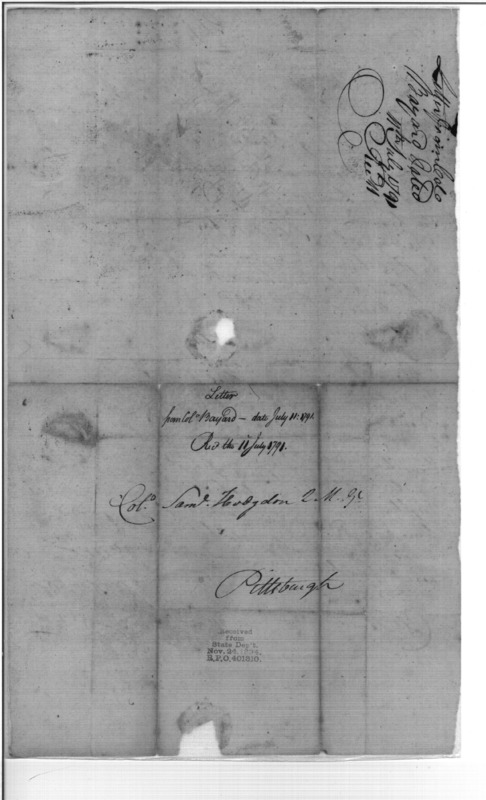 Letter from Colo
Bayard Dated
11th July 1791
Letter
from Colo. Bayard — date July 11: 1791.
Recd the 11 July 1791.
Colo. Saml. Hodgdon Q. M. Gl.
Pittsburgh
Received
from
State Dep't.
Nov. 24, 1894,
R.P.O. 401810.